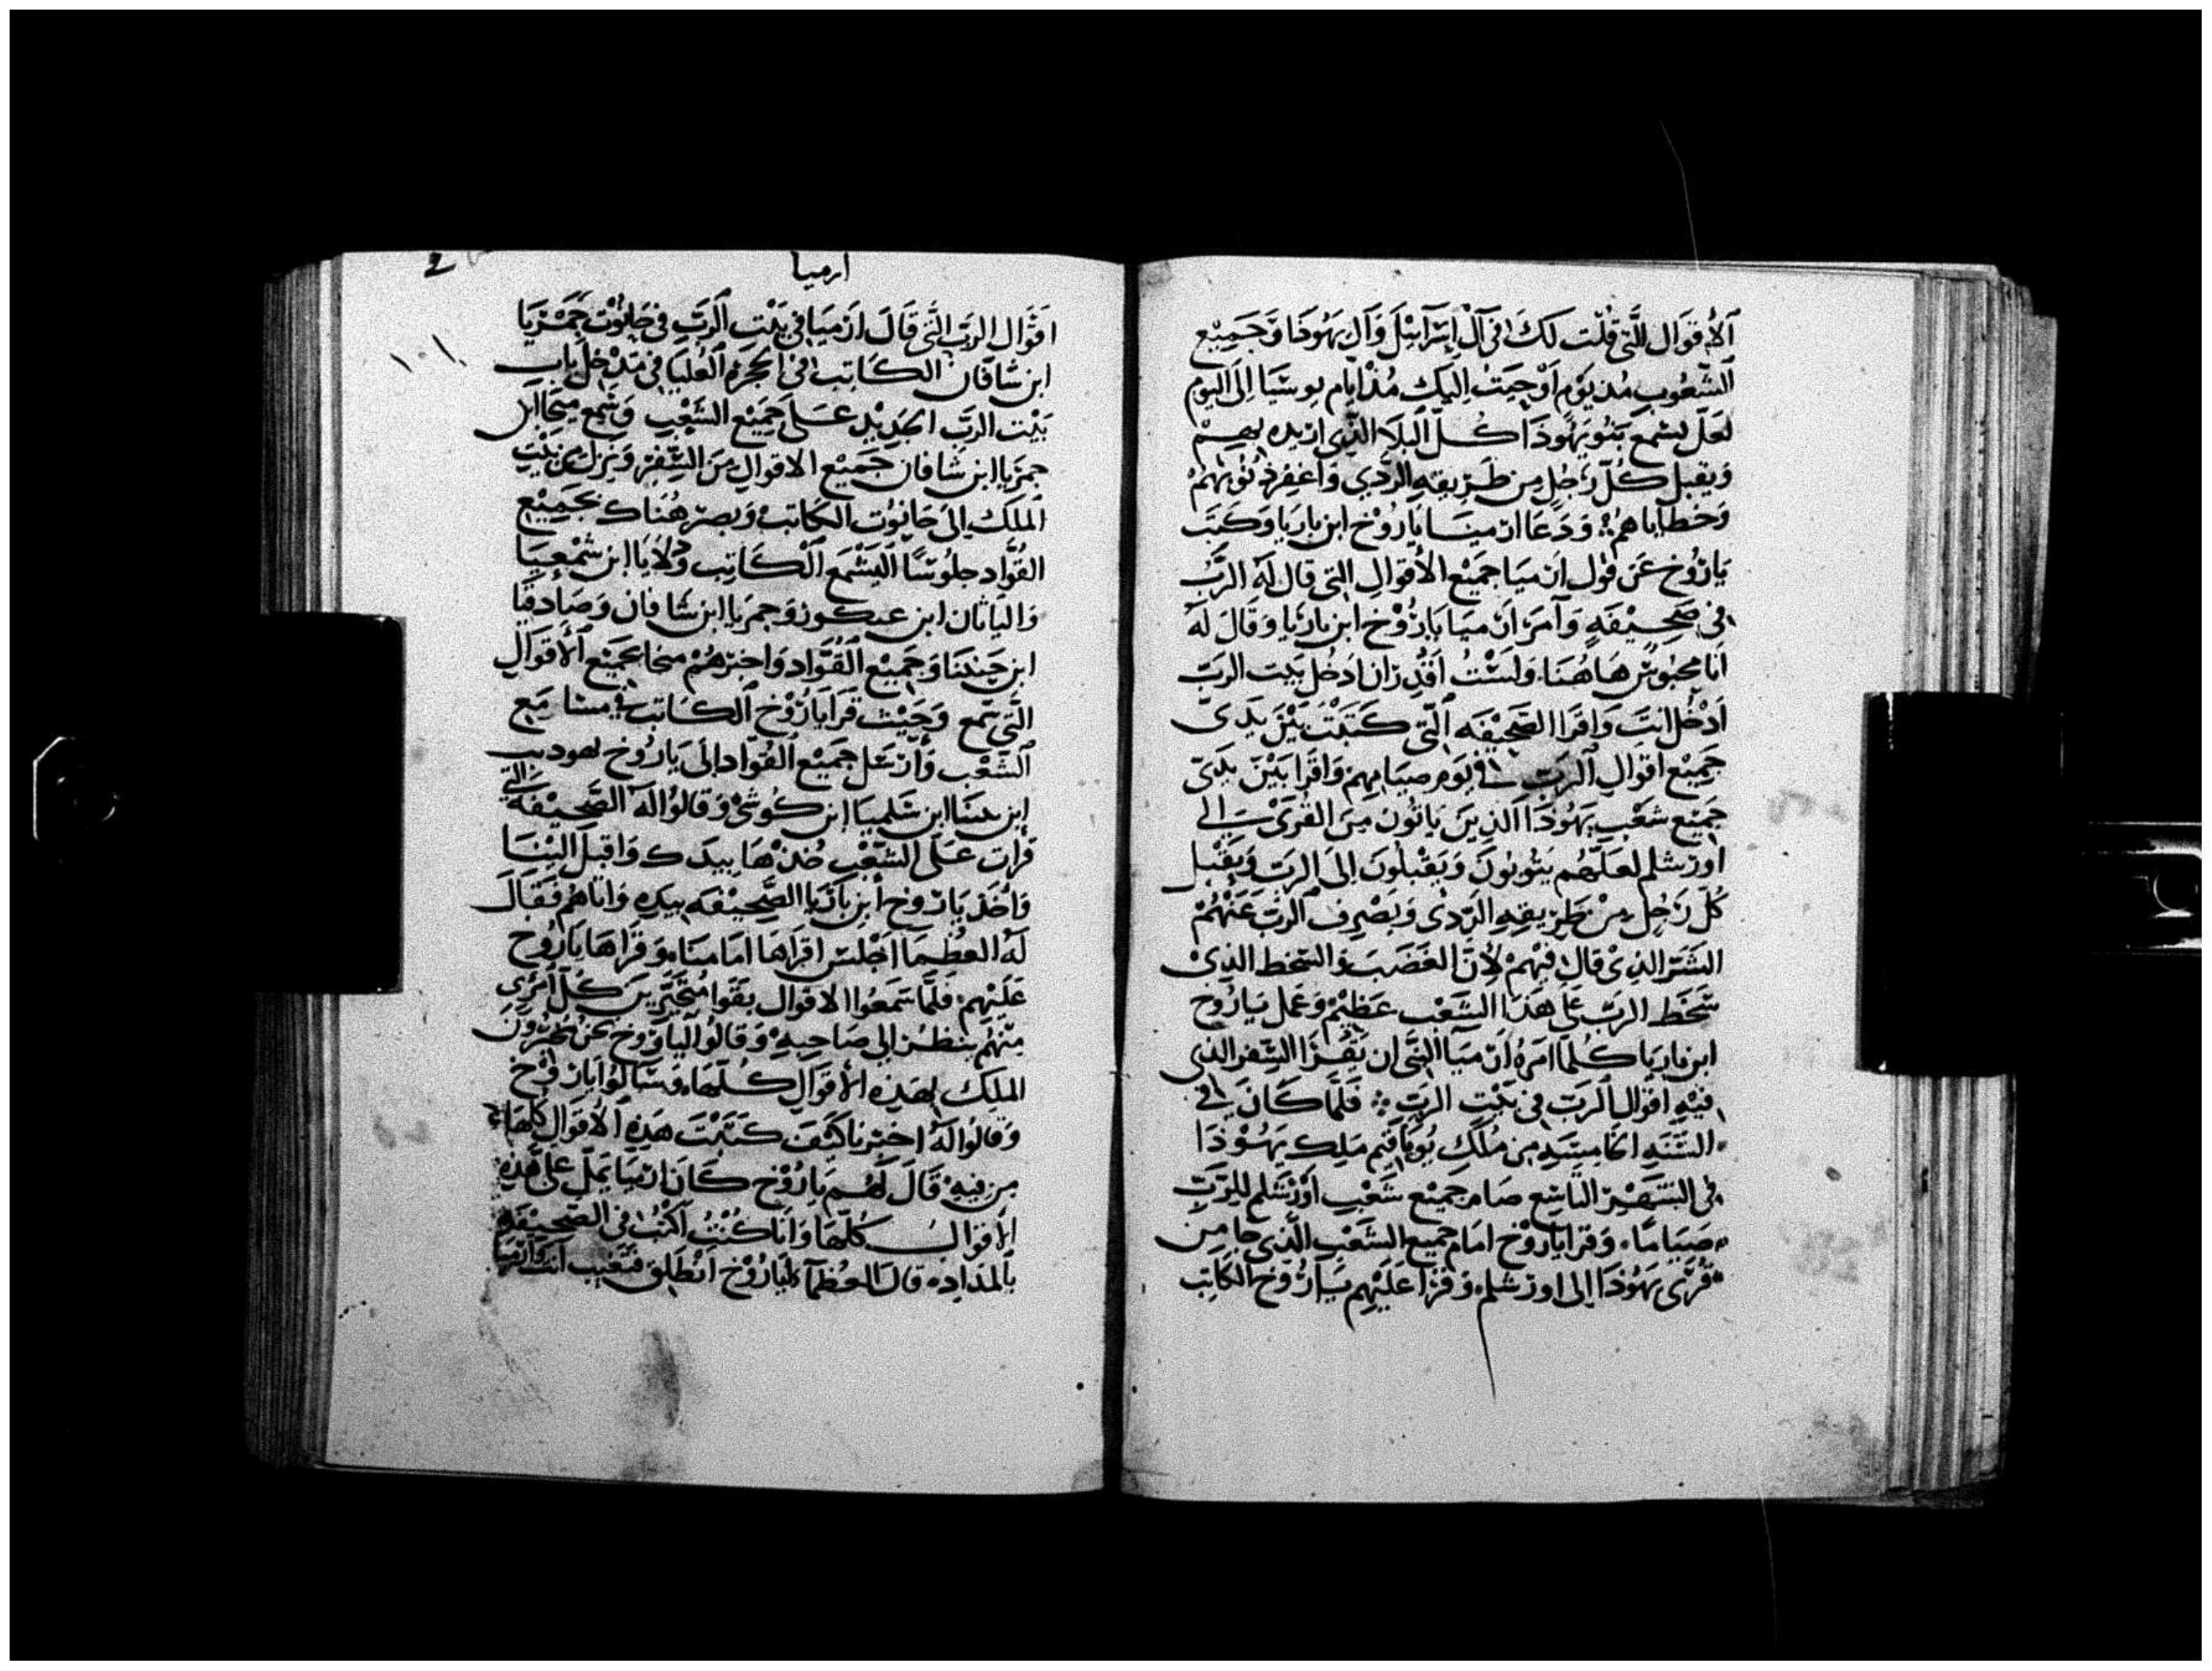 الأقوال التي قلت لك في آل إسرائيل وآل يهوذا وجميع
الشعوب مذ يوم أوحيت إليك مذ أيام يوشيا إلى اليوم
لعل يسمع بنو يهوذا كل البلا الذي اريده بهم
ويقبل كل رجل من طريقه الردي واغفر ذنوبهم
وخطاياهم ودعا ارميا ياروخ ابن باريا وكتب
ياروخ عن قول ارميا جميع الأقوال التي قال له الرب
في صحيفه وآمر ارميا ياروخ ابن باريا وقال له
انا محبوس هاهنا ولست أقدر ان ادخل بيت الرب
ادخل انت واقرا الصحيفه التي كتبت بين يدي
جميع اقوال الرب في يوم صيامهم واقرا بين يدي
جميع شعب يهوذا الذين ياتون من القرى الي
اورشلم لعلهم يتوبون ويقبلون الى الرب ويقبل
كل رجل من طريقه الردى ويصرف الرب عنهم
الشر الذي قال فيهم لأن الغضب والسخط الذي
سخط الرب على هذا الشعب عظيم وعمل ياروخ
ابن باريا كلما امره ارميا النبى ان يقرا السفر الذي
فيه اقوال الرب في بيت الرب فلما كان في
السنه الخامسه من ملك يوياقيم ملك يهوذا
في الشهر التاسع صام جميع شعب اورشلم للرب
صياما وقرا ياروخ امام جميع الشعب الذي جا من
قرى يهوذا الى اورشلم وقرا عليهم ياروخ الكاتب
ارميا
اقوال الرب التي قال ارميا في بيت الرب في حانوت جمريا
ابن شافان الكاتب في الحجره العليا في مدخل باب
بيت الرب الجديد على جميع الشعب وسمع ميخا ابن
جمريا ابن شافان جميع الاقوال من السفر ونزل من بيت
الملك الى حانوت الكاتب وبصر هناك بجميع
القواد جلوسا اليشمع الكاتب ودلايا ابن شمعيا
والياثان ابن عبكور وجمريا ابن شافان وصادقيا
ابن حننيا وجميع القواد واخبرهم ميخا بجميع الأقوال
التي سمع وحيث قرا ياروخ الكاتب في مسامع
الشعب وأرسل جميع القواد الى ياروخ لهوديب
ابن شلميا ابن كوشي وقالوا له الصحيفه التي
قرات على الشعب خذها بيدك واقبل الينا
واخذ ياروخ ابن باريا الصحيفه بيده واتاهم فقال
له العظما اجلس اقراها امامنا وقراها ياروخ
عليهم فلما سمعوا الاقوال بقوا متحيرين كل امرى
منهم ينظر الى صاحبه وقالوا لياروخ نحن مخبرون
الملك بهذه الأقوال كلها وسالوا ياروخ
وقالوا له اخبرنا كيف كتبت هذه الأقوال كلها
من فيه قال لهم ياروخ كان ارميا يمل على هذه
الأقوال كلها وانا كنت اكتب في الصحيفه
بالمداد قال العظما لياروخ انطلق فتغيب انت وارميا